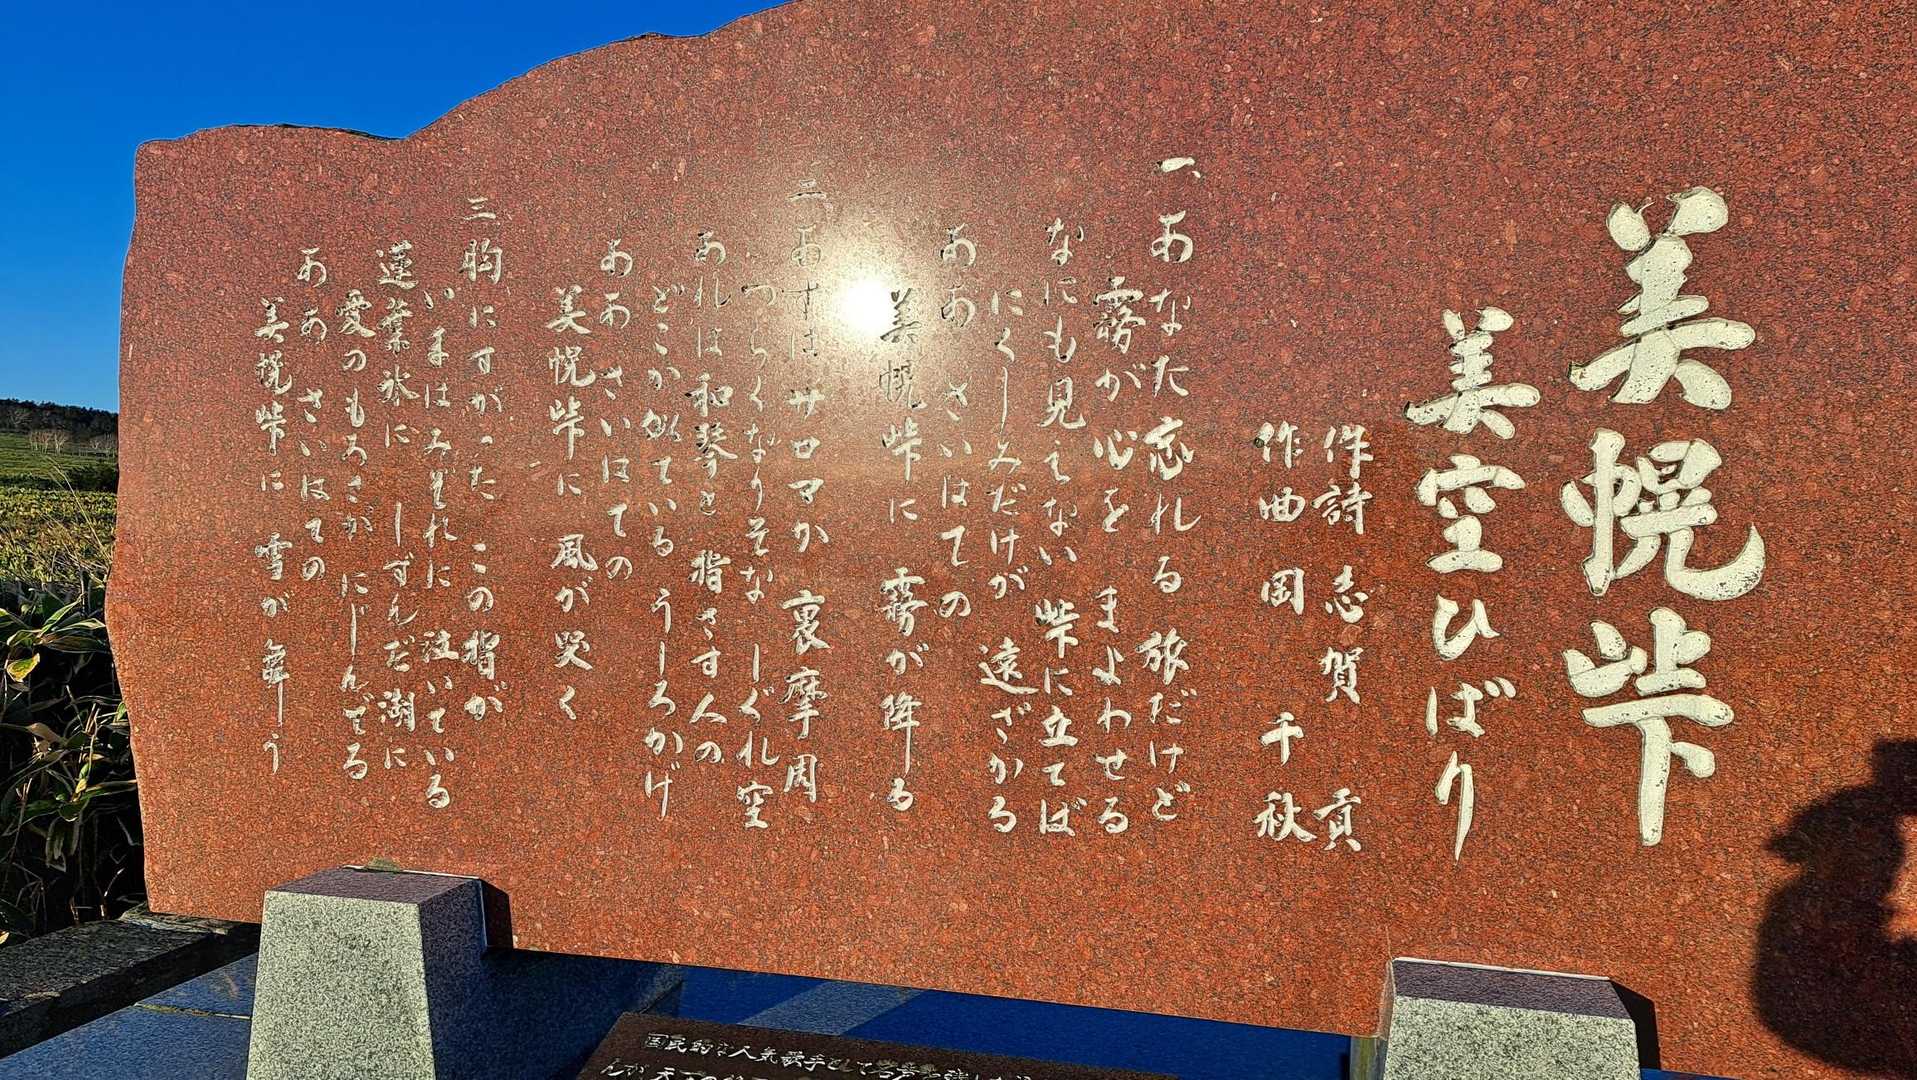 美幌峠
美空ひばり
作詩 志賀 貢
作曲 岡 千秋
一、あなた忘れる 旅だけど
霧が心を まよわせる
なにも見えない 峠に立てば
にくしみだけが 遠ざかる
ああ さいはての
美幌峠に 霧が降る
二、あすはサロマか 裏摩周
つらくなりそな しぐれ空
あれは和琴と 指さす人の
どこか似ている うしろかげ
ああ さいはての
美幌峠に 風が哭く
三、胸にすがった この指が
いまはみぞれに 泣いている
蓮葉氷に しずんだ湖に
愛のもろさが にじんでる
ああ さいはての
美幌峠に 雪が舞う
国民的な人気歌手として